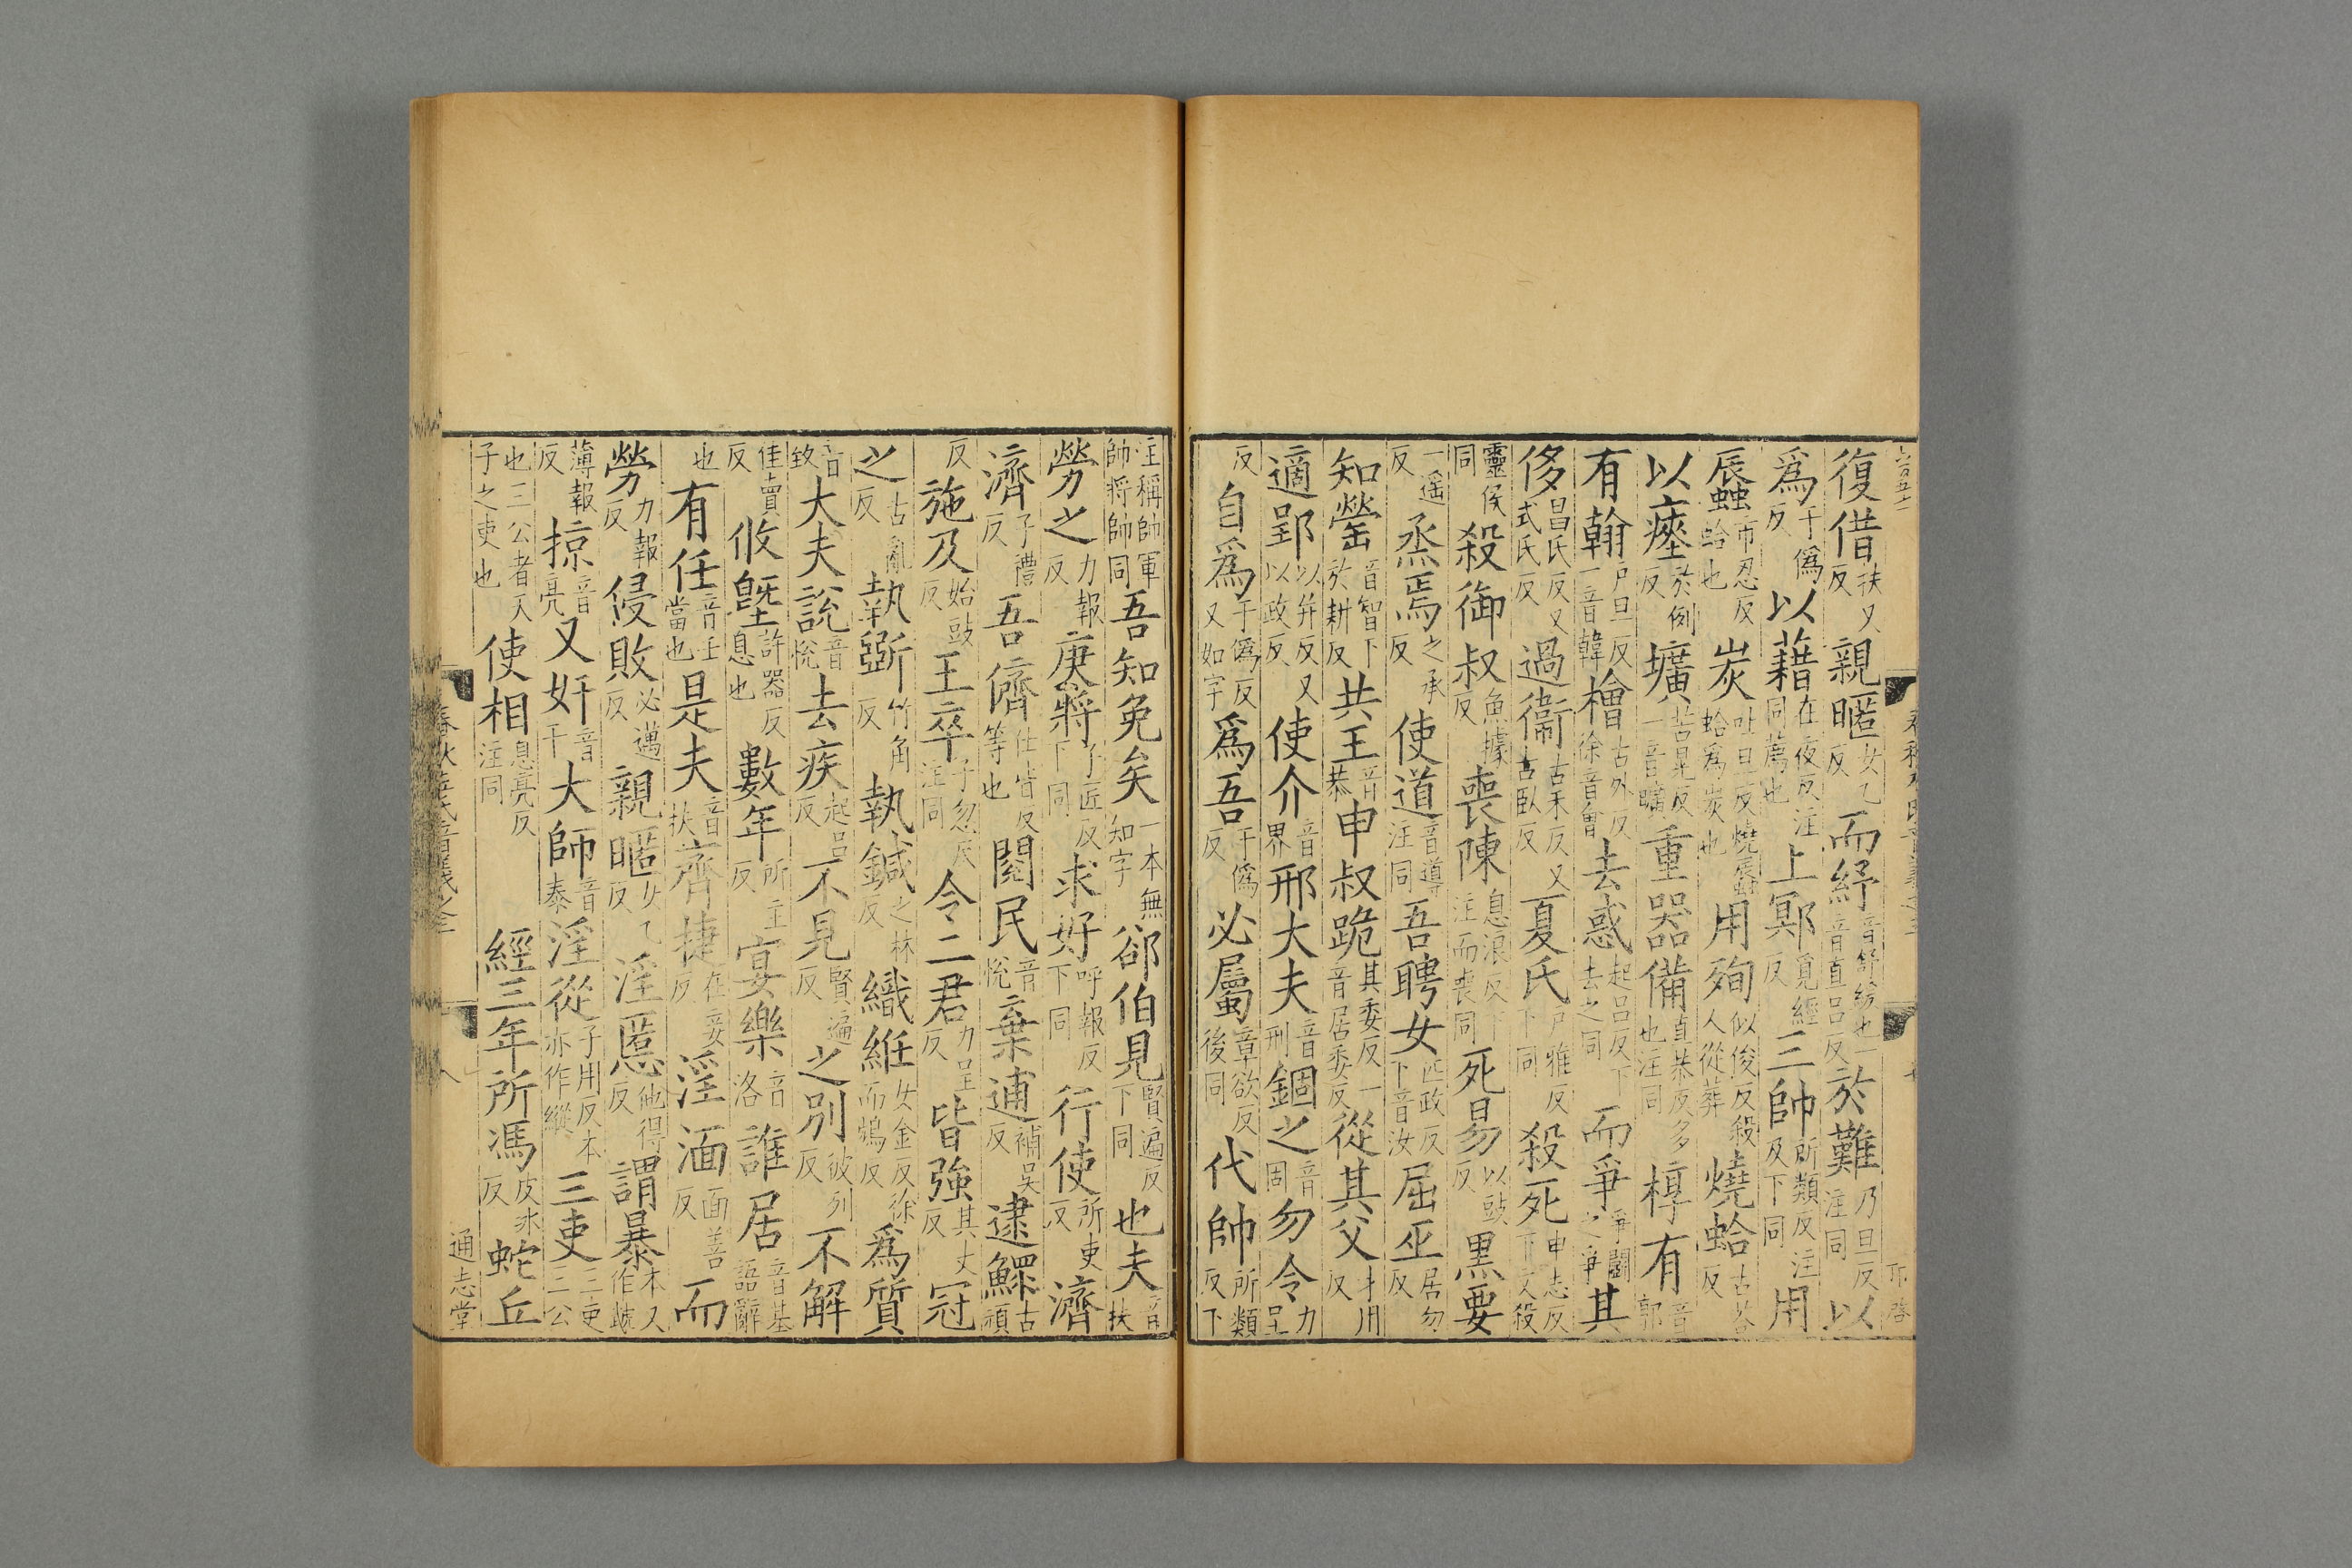 復借扶又反親暱女乙反而紓音舒緩也一音直呂反於難乃旦反注同以
爲于僞反以藉在夜反注同薦也上鄍覓經反三帥所類反注及下同用
蜃市忍反蛤也炭吐旦反燒蜃蛤爲炭也用殉似俊反殺人從葬燒蛤古荅反
以瘞於例反壙苦晃反一音曠重器備直恭反多也注同椁有音郭
有翰户旦反一音韓檜古外反徐音會去惑起呂反下去之同而爭爭鬭之爭其
侈昌氏反又式氏反過衞古禾反又古臥反夏氏户雅反下同殺死申志反下文殺
靈侯同殺御叔魚據反喪陳息浪反下注而喪同死易以豉反黑要
一遥反烝焉之承反使道音導注同吾聘女匹政反下音汝屈巫居勿反
知罃音智下於耕反共王音恭申叔跪其委反一音居委反從其父才用反
適郢以井反又以政反使介音界邢大夫音刑錮之音固勿令力呈
反自爲于僞反又如字爲吾于僞反必屬章欲反後同代帥所類反下
注稱帥軍帥將帥同吾知免矣一本無知字郤伯見賢遍反下同也夫音扶
勞之力報反庚將子匠反下同求好呼報反下同行使所吏反濟
濟子禮反吾儕仕皆反等也閱民音悅棄逋補吳反逮鰥古頑
反施及始豉反王卒子忽反注同令二君力呈反皆強其丈反冠
之古亂反執斲竹角反執鍼之林反織紝女金反徐而鴆反爲質
音致大夫說音悅去疾起呂反不見賢遍反之別彼列反不解
佳賣反攸墍許器反息也數年所主反宴樂音洛誰居音基語辭
也有任音壬當也是夫音扶齊捷在妾反淫湎面善反而
勞力報反侵敗必邁反親暱女乙反淫慝他得反謂暴本又作虣
薄報反掠音亮又奸音干大師音泰淫從子用反本亦作縱三吏三吏三公
也三公者天子之吏也使相息亮反注同經三年所馮皮冰反蛇丘
通志堂